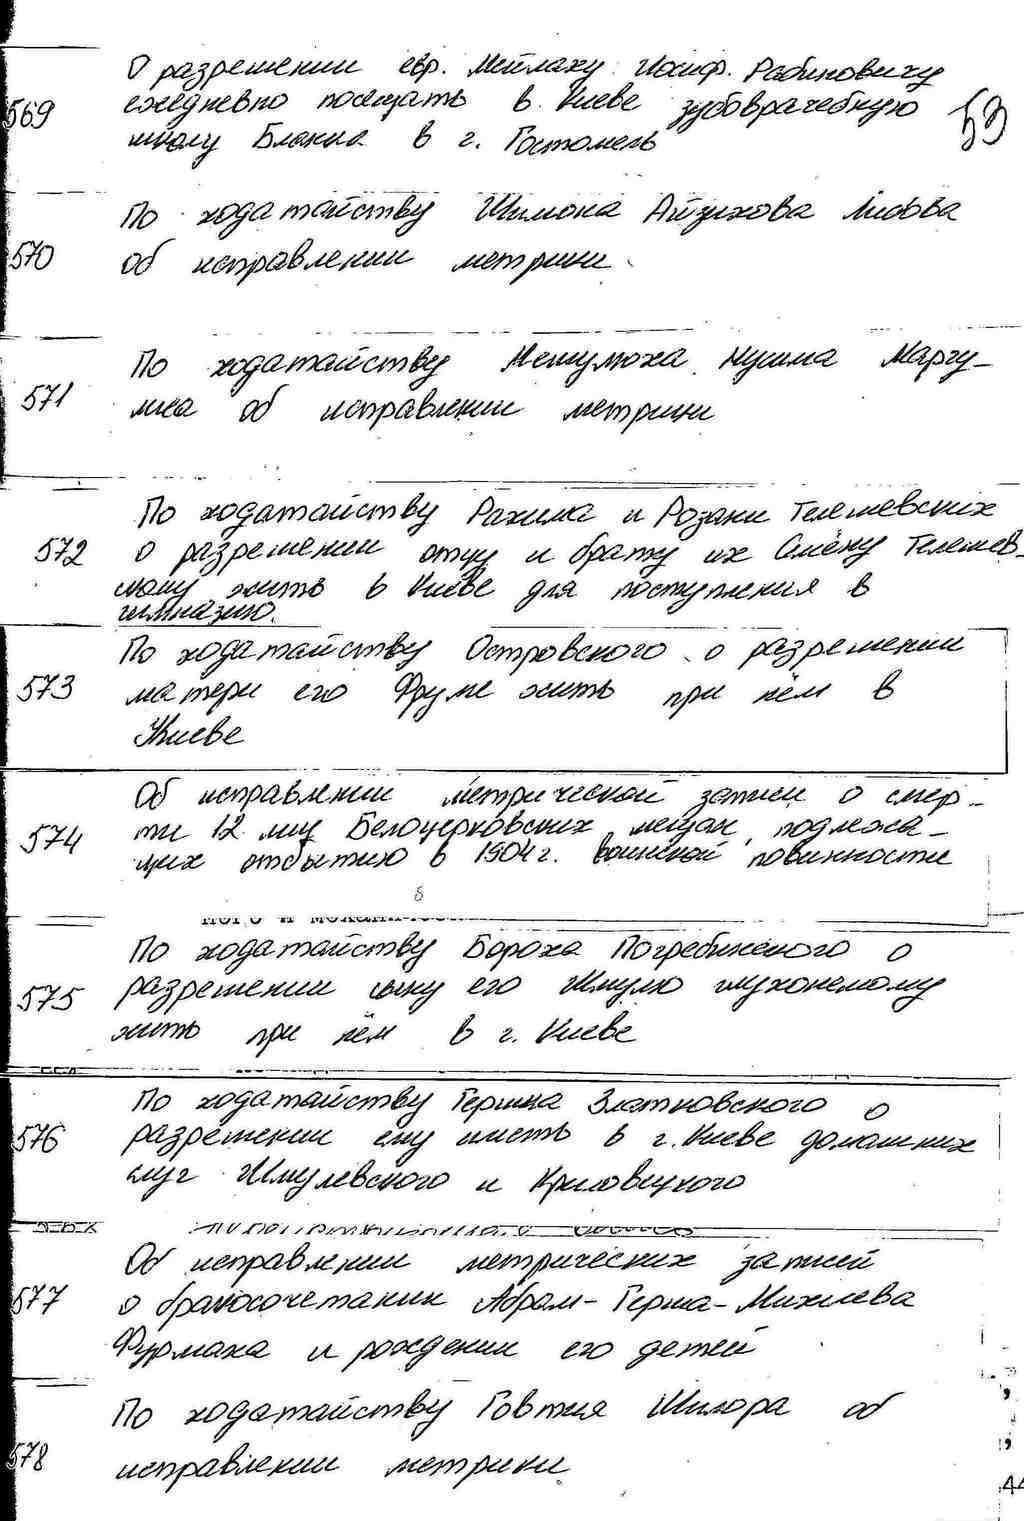 О разрешении евр. Мейлаху Иосиф. Рабиновичу
569 ежедневно посещать в Киеве зубоврачебную 53
школу Бланка в г. Гостомель
По ходатайству Шимона Айзикова Львова
570 об исправлении метрики.
По ходатайству Нушима Маргу-
571 лиса об исправлении метрики
По ходатайству Рахили и Розалии Телешевских
572 о разрешении отцу и брату их Телешев-
скому жить в Киеве для поступления в
гимназию.
По ходатайству Островского о разрешении
573 матери его Фруме жить при нём в
Киеве
Об исправлении метрической записи о смер-
574 ти 12 лиц Белоцерковских мещан, подлежа-
щих отбытию в 1904 г. воинской повинности
По ходатайству Бороха Погребинского о
575 разрешении сыну его Шмулю глухонемому
жить при нём в г. Киеве
По ходатайству Гершка Златковского о
576 разрешении ему иметь в г. Киеве домашних
слуг Шмулевского и Криловецкого
Об исправлении метрических записей
577 о бракосочетании Абрам-Герша-Михелева
Фурмана и рождении его детей
По ходатайству Шимора об
578 исправлении метрики
44